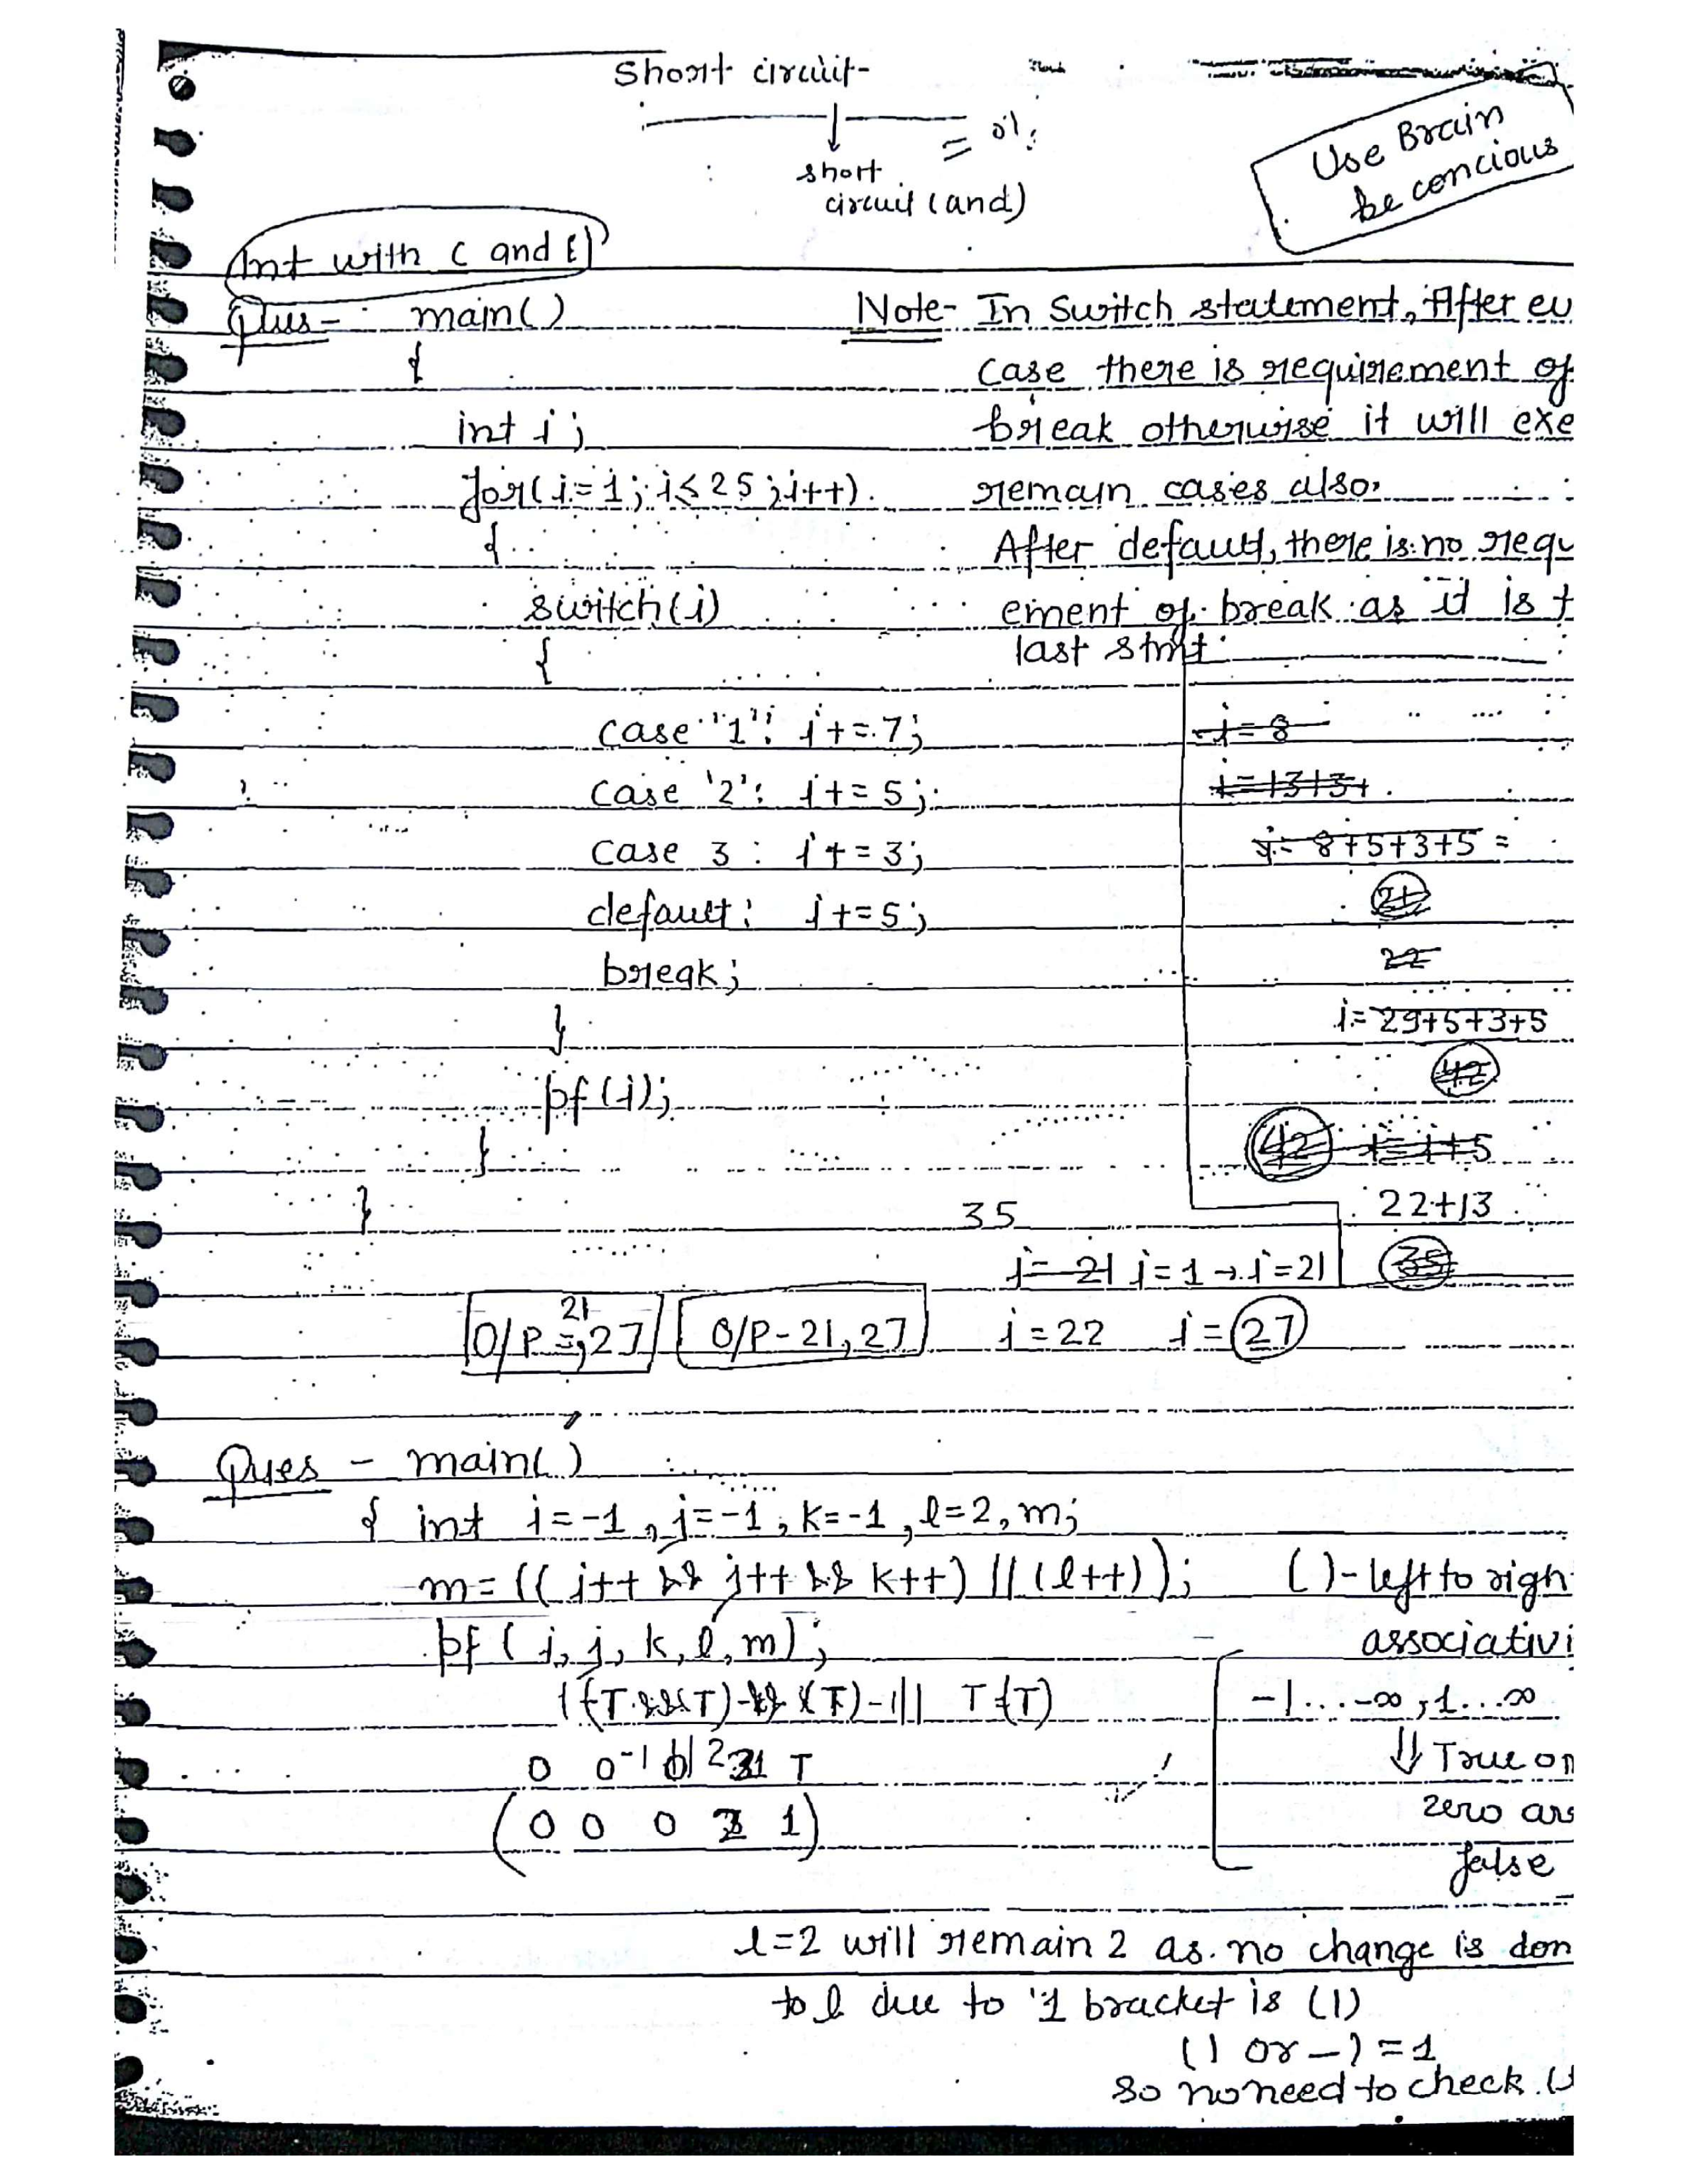 Short circuit-
short = 0/;
circuit (and)
Use Brain
be concious
Int with C and E)
Ques - main()
{
int i;
for(i=1; i<25; i++)
{
switch(i)
{
case '1': i+=7;
case '2': i+=5;
case 3: i+=3;
default: i+=5;
break;
}
pf(i);
}
}
Note- In Switch statement, After ev
case there is requirement of
break otherwise it will exe
remain cases also.
After default, there is no requ
ement of break as it is t
last stmt.
i=8
i=13+3+
i=8+5+3+5=
21
22
i=29+5+3+5
42
42 i=i+5
22+13
35
35
i=21 i=1→i=21
i=22 i=27
21
O/P=,27 O/P-21,27
Ques - main()
{ int i=-1, j=-1, k=-1, l=2, m;
m=((i++ && j++ && k++) || (l++));
pf(i, j, k, l, m);
()-left to righ
associativi
-1...-∞, 1...∞
⇓ True or
zero are
false
((T&&T)-&&(T)-1|| T(T)
0 0 -1 0 1 2 3 1 T
(0 0 0 2 1)
l=2 will remain 2 as no change is don
to l due to '1 bracket is (1)
(1 or -)=1
so no need to check